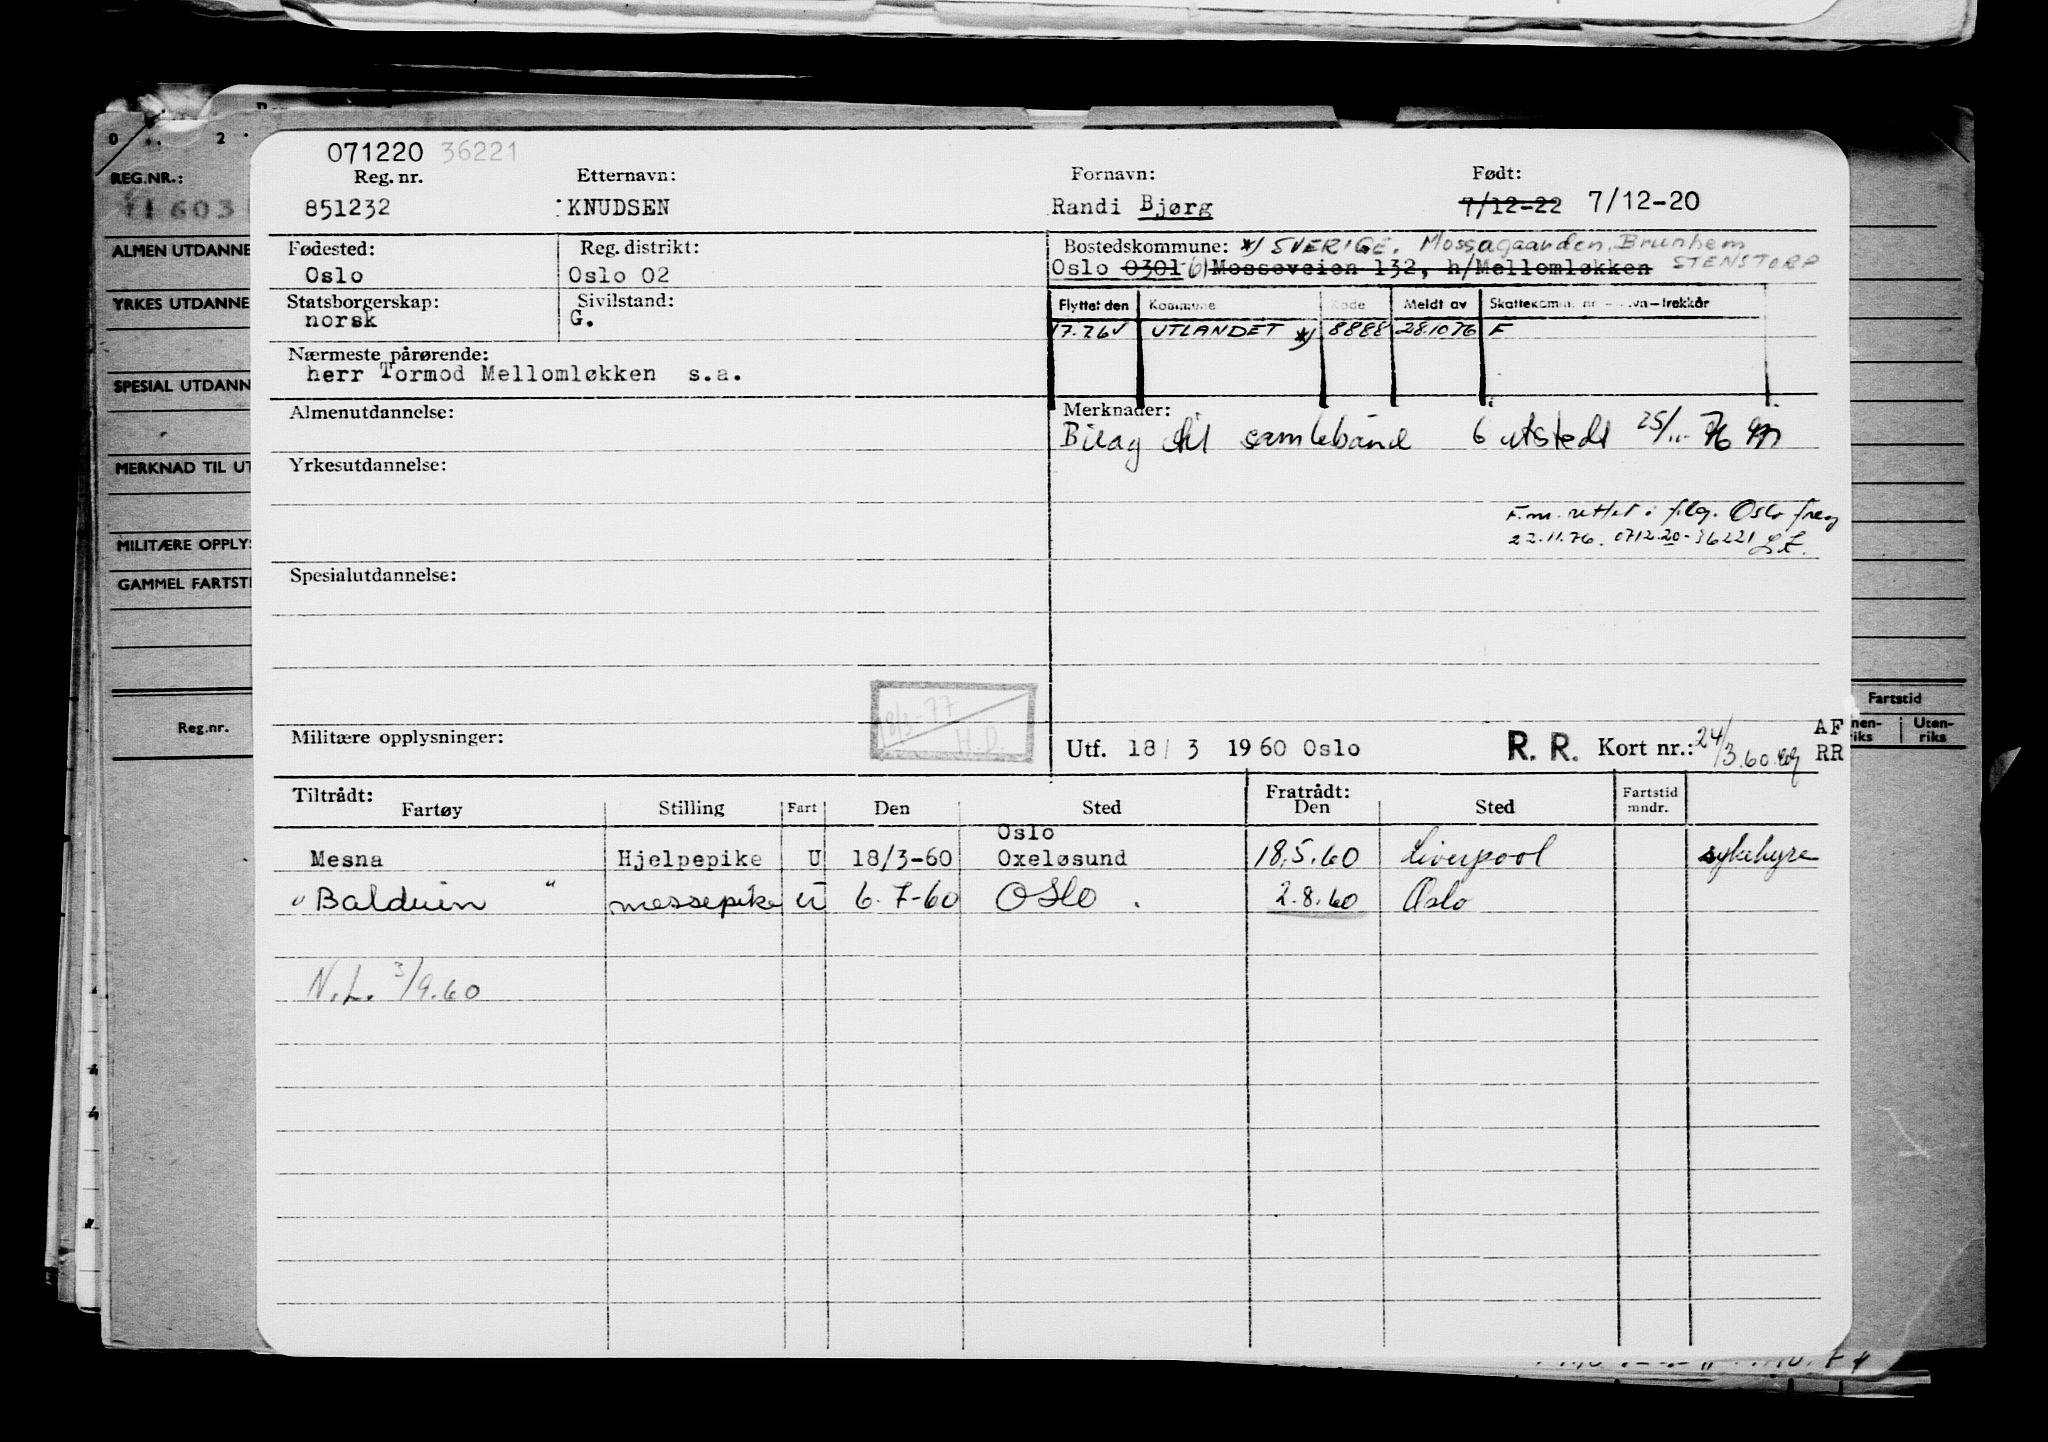 0 2
REG.NR.:
ALMEN UTDANNE
YRKES UTDANNE
SPESIAL UTDANN
MERKNAD TIL UT
MILITÆRE OPPLYS
GAMMEL FARTSTI
Reg.nr.
071220 36221
Reg. nr. Etternavn: Fornavn: Født:
851232 KNUDSEN Randi Bjørg 7/12-22 7/12-20
Fødested: Reg. distrikt: Bostedskommune: *) SVERIGE. Mossagaarden, Brunhem
Oslo Oslo 02 Oslo 0301-61 Mosseveien 132, h/Mellomløkken STENSTORP
Statsborgerskap: Sivilstand: Flyttet den Kommune Kode Meldt av Skattekomm. nr
norsk G. UTLANDET *) 8888 281076 F
Nærmeste pårørende:
herr Tormod Mellomløkken s.a.
Almenutdannelse: Merknader:
Bilag til samlebånd 6 utstedt
Yrkesutdannelse:
F.nr. rettet i flg. Oslo freg
22.11.76. 071220-36221
Spesialutdannelse:
18/3-77
H.D.
Militære opplysninger: Utf. 18/ 3 1960 Oslo R. R. Kort nr.: 24/3.60. AF RR
Tiltrådt: Fratrådt: Fartstid mndr.
Fartøy Stilling Fart Den Sted Den Sted
Oslo
Mesna Hjelpepike U 18/3-60 Oxeløsund 18.5.60 Liverpool sykehyre
"Balduin" messepike U 6.7-60 OSLO. 2.8.60 Oslo
N.L. 3/9.60
Fartstid
nen-riks Uten-riks